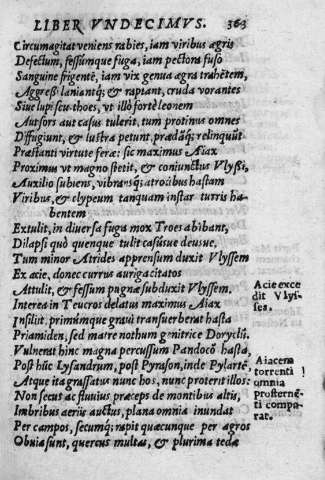 LIBER VNDECIMVS. 363
Circumagitat veniens rabies, iam viribus ægris
Defectum, fessumque fuga, iam pectora fuso
Sanguine frigentē, iam vix genua ægra trahētem,
Aggressi laniantq; & raptant, cruda vorantes
Siue lupi seu thoes, vt illò fortè leonem
Aut fors aut casus tulerit, tum protinus omnes
Diffugiunt, & lustra petunt, prædāq; relinquūt
Præstanti virtute feræ: sic maximus Aiax
Proximus vt magno stetit, & coniunctus Vlyssi,
Auxilio subiens, vibransq; atro ictus hastam
Viribus, & clypeum tanquam instar turris ha-
bentem
Extulit, in diuersa fuga mox Troes abibant,
Dilapsi quò quenque tulit casúsue deusue,
Tum minor Atrides apprensum duxit Vlyssem
Ex acie, donec currus auriga citatos
Attulit, & fessum pugnæ subduxit Vlyssem.
Interea in Teucros delatus maximus Aiax
Insiliit, primúmque graui transuerberat hasta
Priamiden, sed matre nothum genitrice Doryclū.
Vulnerat hinc magna percussum Pandocō hasta,
Post hūc Lysandrum, post Pyrason, inde Pylartē,
Atque ita grassatus nunc hos, nunc proterit illos:
Non secus ac fluuius præceps de montibus altis,
Imbribus aeriis auctus, plana omnia inundat
Per campos, secumq; rapit quæcunque per agros
Obuia sunt, quercus multas, & plurima teda
Acie exce
dit Vlys-
ses.
Aiacem
torrenti
omnia
prosternē-
ti compa-
rat.